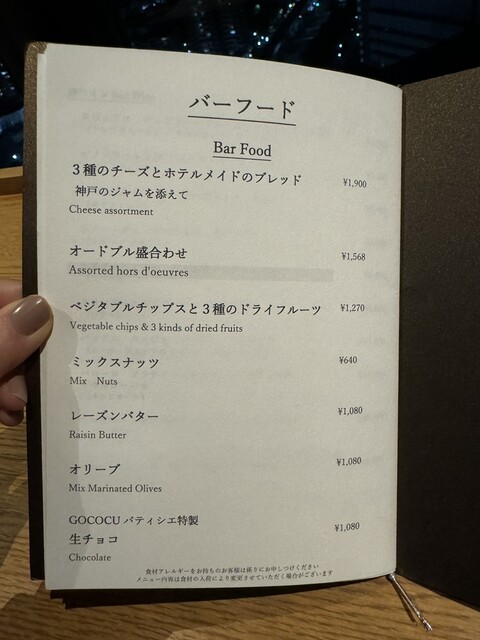 バーフード
Bar Food
３種のチーズとホテルメイドのブレッド ¥1,900
神戸のジャムを添えて
Cheese assortment
オードブル盛合わせ ¥1,568
Assorted hors d'oeuvres
ベジタブルチップスと３種のドライフルーツ ¥1,270
Vegetable chips & 3 kinds of dried fruits
ミックスナッツ ¥640
Mix Nuts
レーズンバター ¥1,080
Raisin Butter
オリーブ ¥1,080
Mix Marinated Olives
GOCOCU パティシエ特製
生チョコ ¥1,080
Chocolate
食材アレルギーをお持ちのお客様は係りにお申しつけください
メニュー内容は食材の入荷により変更させていただく場合がございます